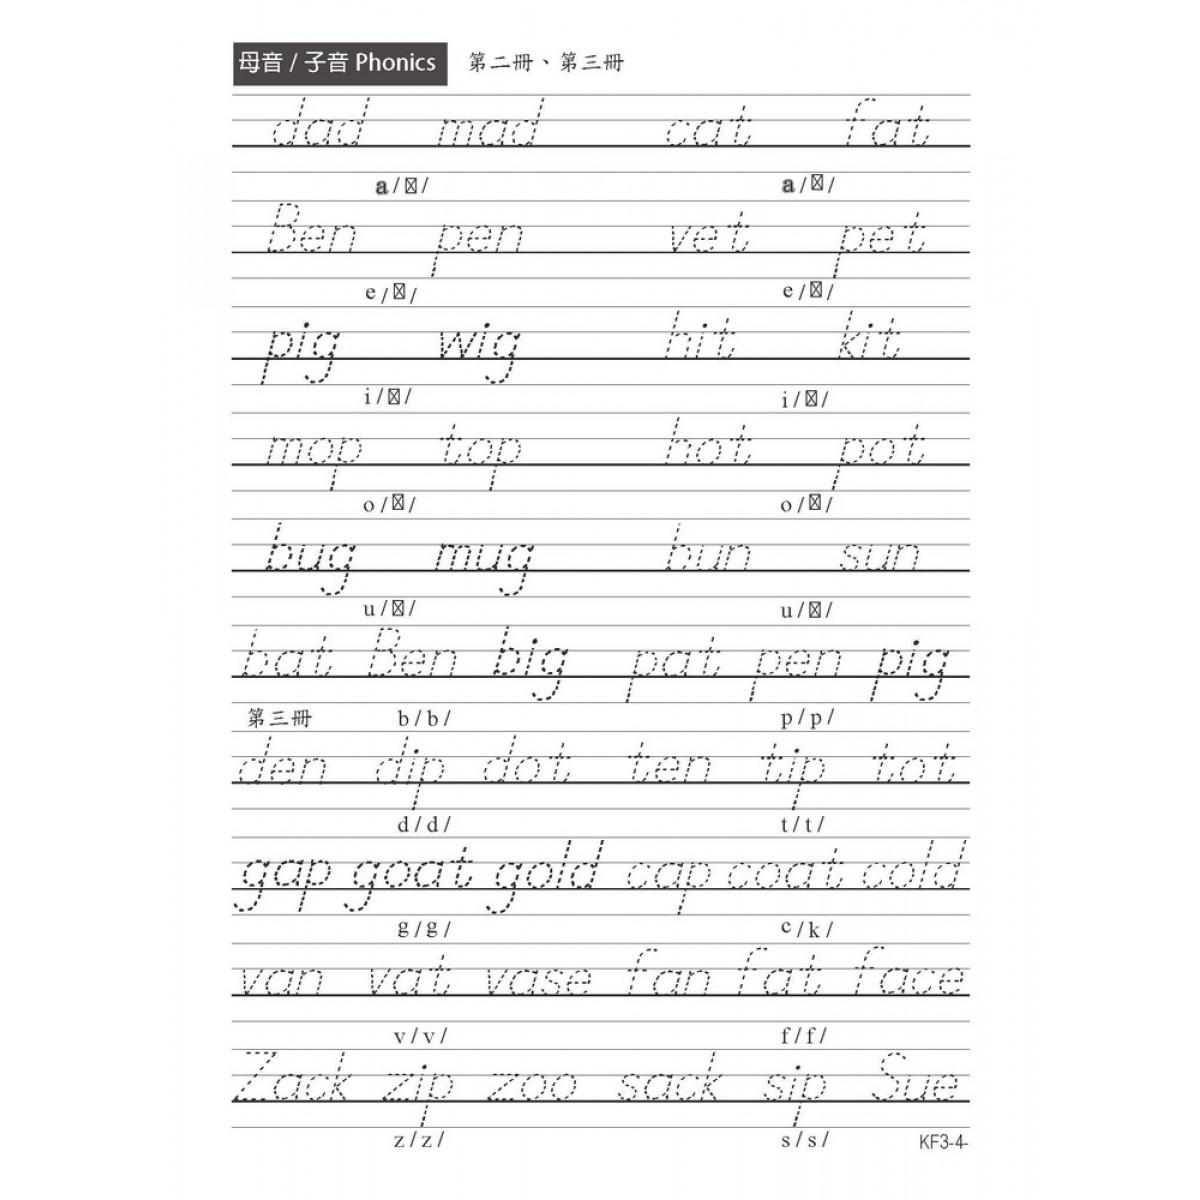 母音 / 子音 Phonics 第二冊、第三冊
dad mad cat fat
a / / a / /
Ben pen vet pet
e / / e / /
pig wig hit kit
i / / i / /
mop top hot pot
o / / o / /
bug mug bun sun
u / / u / /
bat Ben big pat pen pig
第三冊 b / b / p / p /
den dip dot ten tip tot
d / d / t / t /
gap goat gold cap coat cold
g / g / c / k /
van vat vase fan fat face
v / v / f / f /
Zack zip zoo sack sip Sue
z / z / s / s / KF3-4-